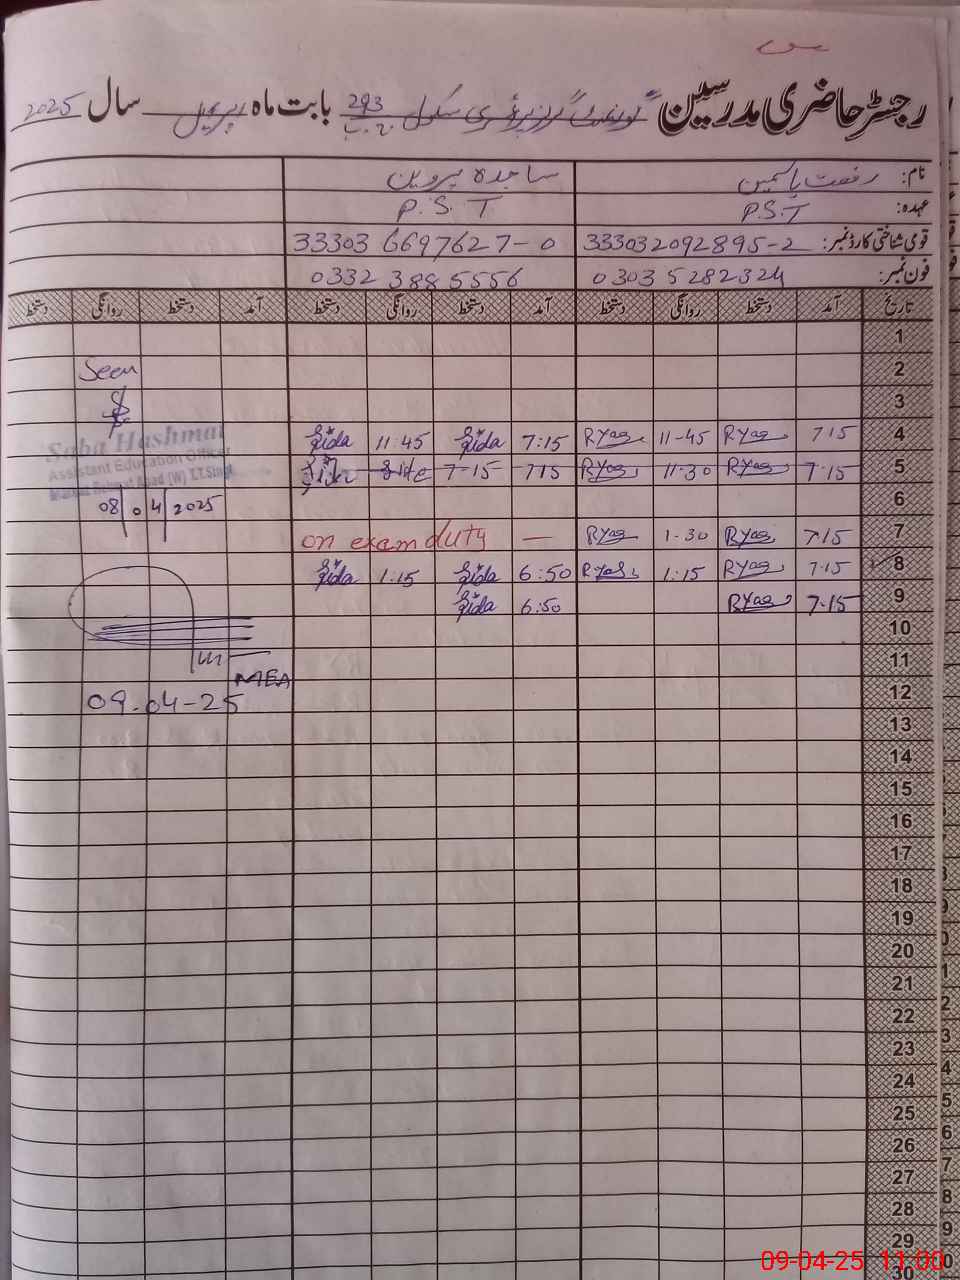 رجسٹر حاضری مدرسین "گورنمنٹ گرلز پرائمری سکول 293 ج۔ب بابت ماہ اپریل سال 2025
نام: رفعت یاسمین ساجدہ پروین
عہدہ: P.S.T P.S.T
قومی شناختی کارڈ نمبر: 333032092895-2 33303 6697627-0
فون نمبر: 0303 5282324 0332 3885556
تاریخ آمد دستخط روانگی دستخط آمد دستخط روانگی دستخط آمد دستخط روانگی دستخط
1
2 Seen
3
4 7 15 RYas 11-45 RYas 7:15 11:45
Saba Hashmat
Assistant Education Officer
5 7·15 RYas 11·30 RYas 7 15 7-15
6 08/04/2025
7 7·15 RYas 1·30 RYas — on exam duty
8 7·15 RYas 1:15 RYas 6:50 1:15
9 7·15 RYas 6:50
10
11
MEA
12 09.04-25
13
14
15
16
17
18
19
20
21
22
23
24
25
26
27
28
29
30
09-04-25 11:00